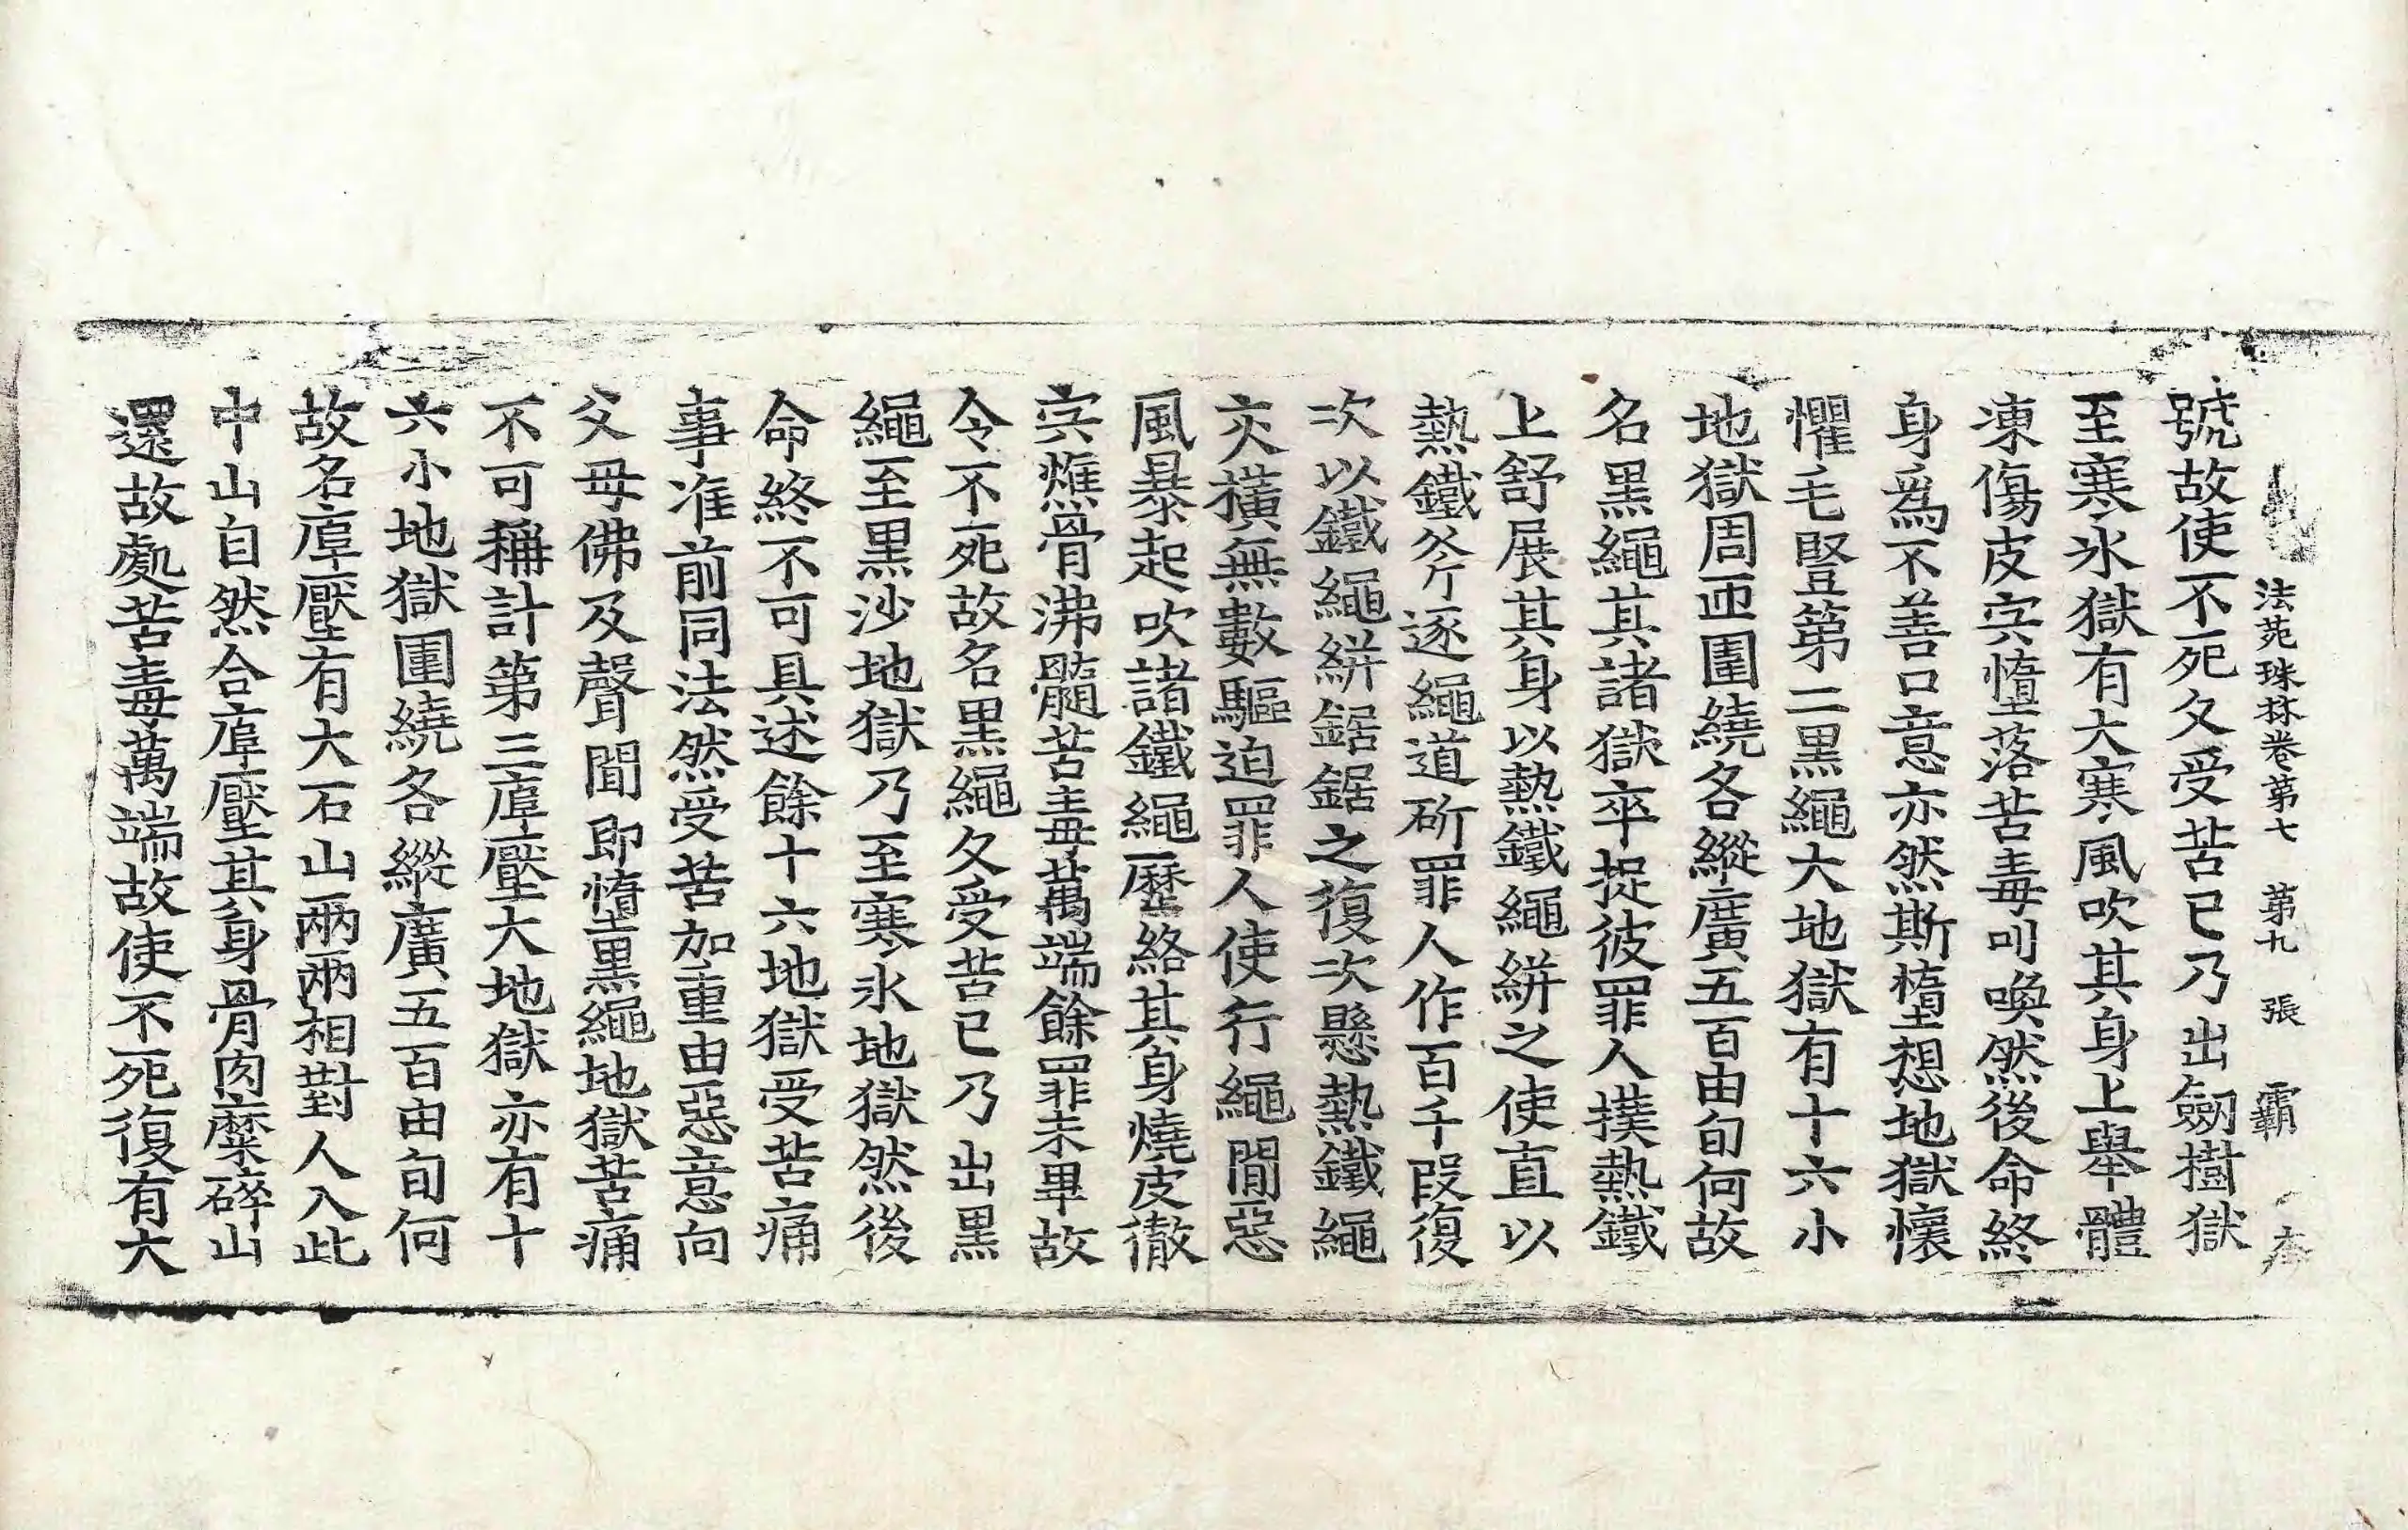 法苑珠林卷第七 第九 張 霸
號故使不死久受苦已乃出劒樹獄
至寒氷獄有大寒風吹其身上舉體
凍傷皮宍墮落苦毒叫喚然後命終
身爲不善口意亦然斯墮想地獄懷
懼毛竪第二黒繩大地獄有十六小
地獄周匝圍繞各縱廣五百由旬何故
名黒繩其諸獄卒捉彼罪人撲熱鐵
上舒展其身以熱鐵繩絣之使直以
熱鐵斧逐繩道斫罪人作百千段復
次以鐵繩絣鋸鋸之復次懸熱鐵繩
交橫無數驅迫罪人使行繩閒惡
風暴起吹諸鐵繩歷絡其身燒皮徹
宍燋骨沸髓苦毒萬端餘罪未畢故
令不死故名黒繩久受苦已乃出黒
繩至黒沙地獄乃至寒氷地獄然後
命終不可具述餘十六地獄受苦痛
事准前同法然受苦加重由惡意向
父母佛及聲聞即墮黒繩地獄苦痛
不可稱計第三㠊壓大地獄亦有十
六小地獄圍繞各縱廣五百由旬何
故名㠊壓有大石山兩兩相對人入此
中山自然合㠊壓其身骨肉糜碎山
還故處苦毒萬端故使不死復有大